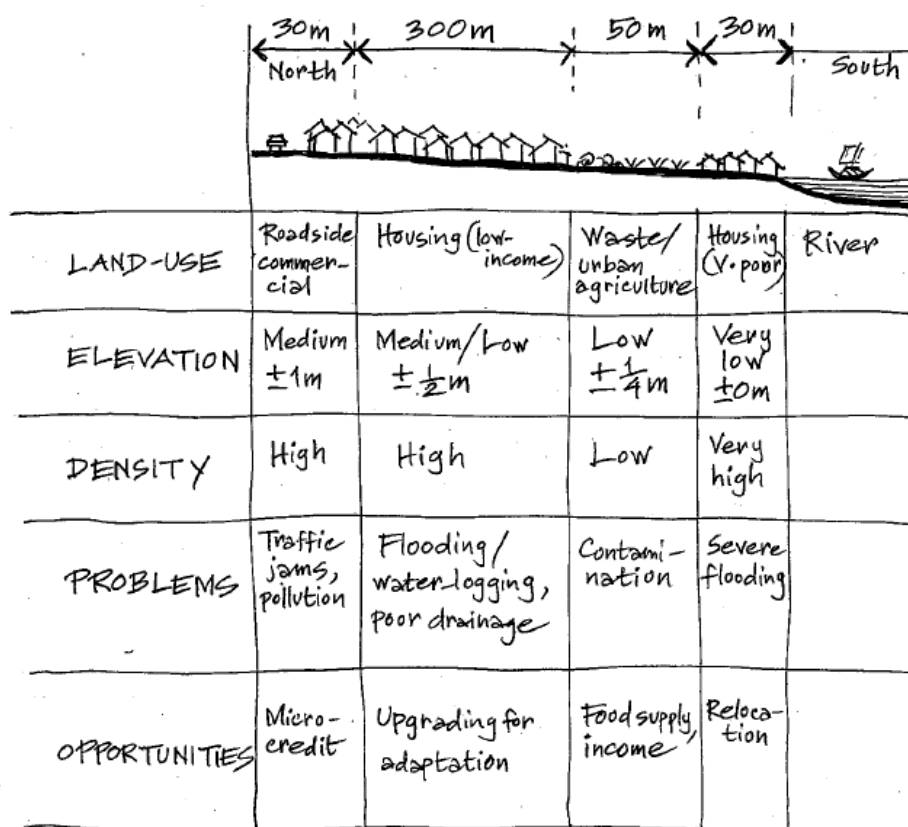 30m 300m 50m 30m
North South
LAND-USE
Roadside
commer-
cial
Housing (low-
income)
Waste/
urban
agriculture
Housing
(V. poor)
River
ELEVATION
Medium
±1m
Medium/Low
±½m
Low
±¼m
Very
low
±0m
DENSITY
High
High
Low
Very
high
PROBLEMS
Traffic
jams,
pollution
Flooding/
water logging,
poor drainage
Contami-
nation
Severe
flooding
OPPORTUNITIES
Micro-
credit
Upgrading for
adaptation
Food supply,
income
Reloca-
tion